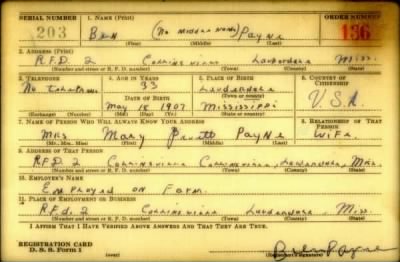 SERIAL NUMBER 1. NAME (Print) ORDER NUMBER
203 Ben (No Middle Name) Payne 136
(First) (Middle) (Last)
2. ADDRESS (Print)
R.F.D. 2 Collinsville Lauderdale Miss.
(Number and street or R. F. D. number) (Town) (County) (State)
3. TELEPHONE 4. AGE IN YEARS 5. PLACE OF BIRTH 6. COUNTRY OF CITIZENSHIP
No telephone 33 Lauderdale
(Town or county)
DATE OF BIRTH
May 18 1907 Mississippi U.S.A.
(Exchange) (Number) (Mo.) (Day) (Yr.) (State or country)
7. NAME OF PERSON WHO WILL ALWAYS KNOW YOUR ADDRESS 8. RELATIONSHIP OF THAT PERSON
Mrs Mary Payne Wife
(Mr., Mrs., Miss) (First) (Middle) (Last)
9. ADDRESS OF THAT PERSON
R.F.D. 2 Collinsville Collinsville, Lauderdale, Miss.
(Number and street or R. F. D. number) (Town) (County) (State)
10. EMPLOYER'S NAME
Employed on Farm.
11. PLACE OF EMPLOYMENT OR BUSINESS
R.F.d. 2 Collinsville Lauderdale, Miss.
(Number and street or R. F. D. number) (Town) (County) (State)
I AFFIRM THAT I HAVE VERIFIED ABOVE ANSWERS AND THAT THEY ARE TRUE.
REGISTRATION CARD
D. S. S. Form 1 Ben Payne
(Registrant's signature)